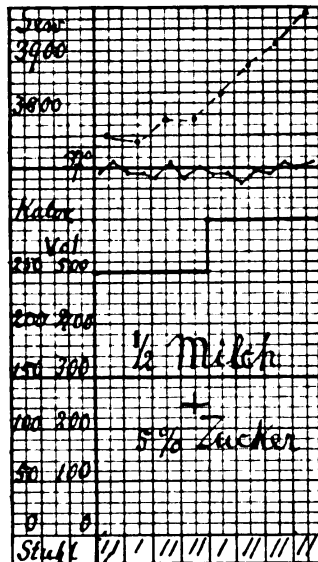 Gew
3900
3800
37°
Kalor
Vol
250 500
200 400
150 300
100 200
50 100
0 0
½ Milch
+
5% Zucker
Stuhl // / // // // // // //